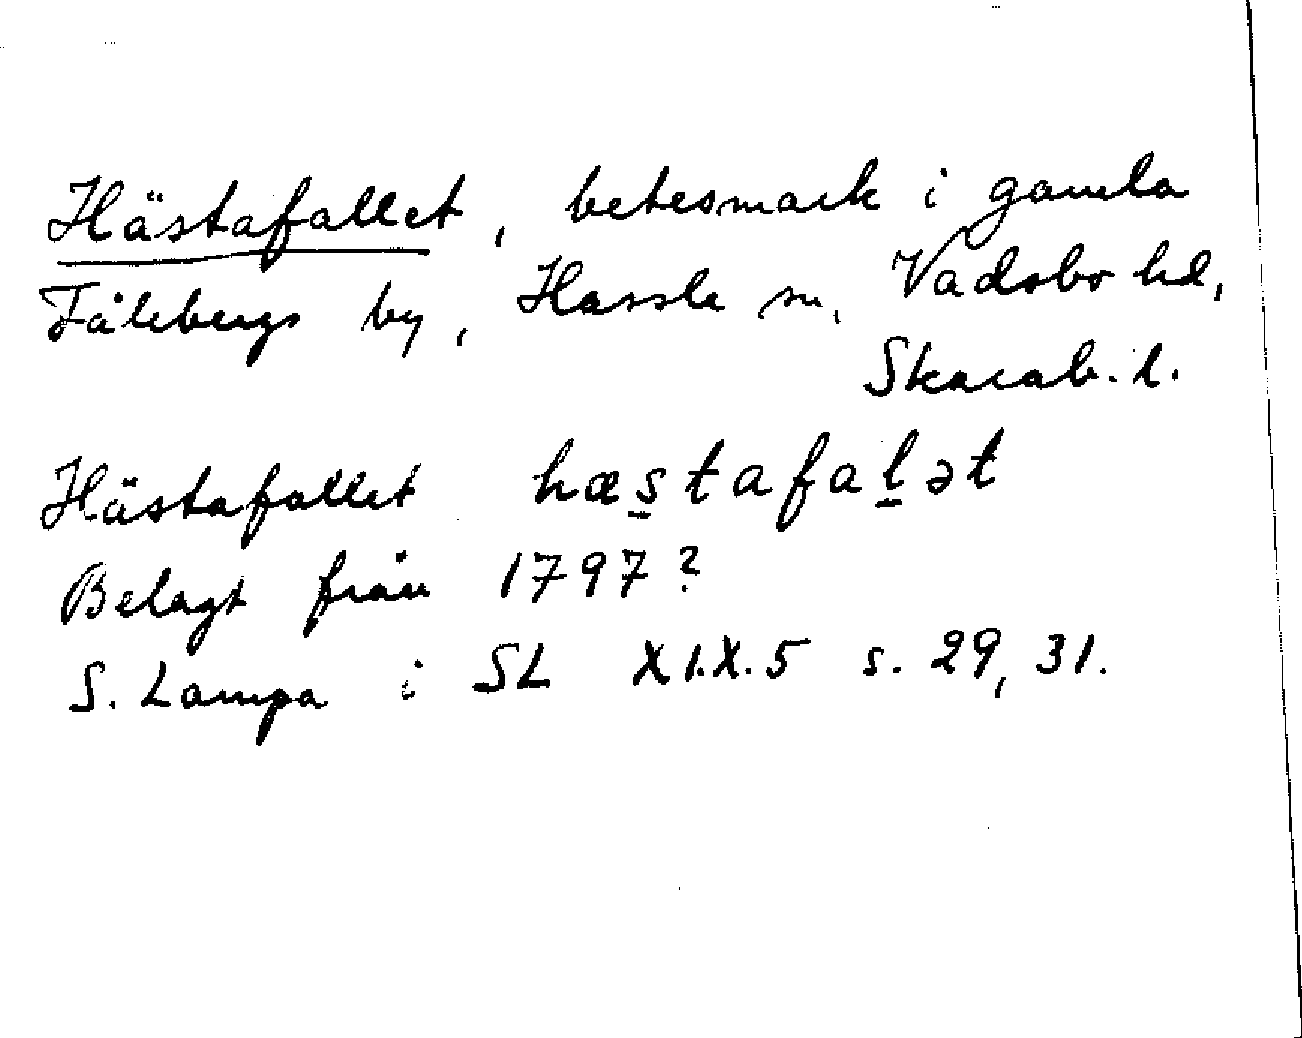 Hästafallet, betesmark i gamla
Fålebergs by, Hassle sn, Vadsbo hd,
Skarab. l.
Hästafallet hæstafalət
Belagt från 1797?
S. Lampa i SL XI.X.5 s. 29, 31.